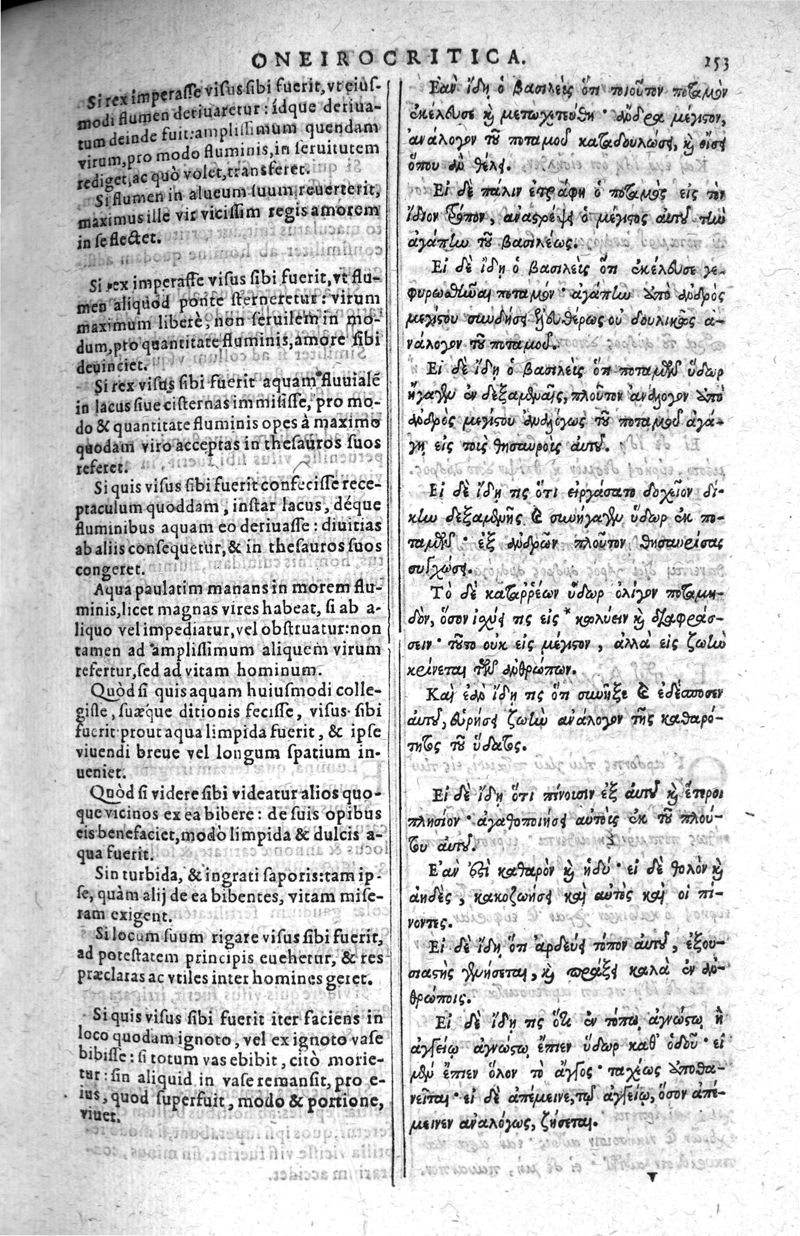 ONEIROCRITICA. 153
Si rex imperasse visus sibi fuerit, vt eius-
modi flumen deriuaretur: ídque deriua-
tum deinde fuit: amplissimum quendam
virum, pro modo fluminis, in seruitutem
rediget, ac quò volet, transferet.
Si flumen in alueum suum reuerterit,
maximus ille vir vicissim regis amorem
in se flectet.
Si rex imperasse visus sibi fuerit, vt flu-
men aliquod ponte sterneretur: virum
maximum liberè, non seruilem in mo-
dum, pro quantitate fluminis, amore sibi
deuinciet.
Si rex visus sibi fuerit aquam fluuialē
in lacus siue cisternas immisisse, pro mo-
do & quantitate fluminis opes à maximo
quodam viro acceptas in thesauros suos
referet.
Si quis visus sibi fuerit confecisse rece-
ptaculum quoddam, instar lacus, déque
fluminibus aquam eo deriuasse: diuitias
ab aliis consequetur, & in thesauros suos
congeret.
Aqua paulatim manans in morem flu-
minis, licet magnas vires habeat, si ab a-
liquo vel impediatur, vel obstruatur: non
tamen ad amplissimum aliquem virum
refertur, sed ad vitam hominum.
Quòd si quis aquam huiusmodi colle-
gisse, suæque ditionis fecisse, visus sibi
fuerit prout aqua limpida fuerit, & ipse
viuendi breue vel longum spatium in-
ueniet.
Quòd si videre sibi videatur alios quo-
que vicinos ex ea bibere: de suis opibus
eis benefaciet, modò limpida & dulcis a-
qua fuerit.
Sin turbida, & ingrati saporis: tam ip-
se, quàm alij de ea bibentes, vitam mise-
ram exigent.
Si locum suum rigare visus sibi fuerit,
ad potestatem principis euehetur, & res
præclaras ac vtiles inter homines geret.
Si quis visus sibi fuerit iter faciens in
loco quodam ignoto, vel ex ignoto vase
bibisse: si totum vas ebibit, citò morie-
tur: sin aliquid in vase remansit, pro e-
ius, quod superfuit, modo & portione,
viuet.
Ἐὰν ἴδῃ ὁ βασιλεὺς ὅτι τοιοῦτον ποταμὸν
ἐκέλευσε καὶ μετωχετεύθη· ἄνδρα μέγιστον,
ἀνάλογον τοῦ ποταμοῦ καταδουλώσει, καὶ οἴσει
ὅπου ἂν θέλῃ.
Εἰ δὲ πάλιν ἐτράφη ὁ ποταμὸς εἰς τὸν
ἴδιον τόπον, ἀναστρέψει ὁ μέγιστος αὐτοῦ τὴν
ἀγάπην τοῦ βασιλέως.
Εἰ δὲ ἴδῃ ὁ βασιλεὺς ὅτι ἐκέλευσε γε-
φυρωθῆναι ποταμόν· ἀγάπην ὑπὸ ἀνδρὸς
μεγίστου συνδήσει ἐλευθέρως οὐ δουλικῶς ἀ-
νάλογον τοῦ ποταμοῦ.
Εἰ δὲ ἴδῃ ὁ βασιλεὺς ὅτι ποταμῶν ὕδωρ
ἤγαγεν ἐν δεξαμεναῖς, πλοῦτον ἀνάλογον ὑπὸ
ἀνδρὸς μεγίστου ἀναλόγως τοῦ ποταμοῦ ἀγά-
γῃ εἰς τοὺς θησαυροὺς αὐτοῦ.
Εἰ δὲ ἴδῃ τις ὅτι εἰργάσατο δοχεῖον δί-
κην δεξαμενῆς καὶ συνήγαγεν ὕδωρ ἐκ πο-
ταμῶν· ἐξ ἀνδρῶν πλοῦτον θησαυρίσας
συγχώσει.
Τὸ δὲ καταρρέων ὕδωρ ὀλίγον ποταμη-
δὸν, ὅσον ἰσχύει τις εἰς * κωλύειν καὶ διαφράσ-
σειν· τοῦτο οὐκ εἰς μέγιστον, ἀλλὰ εἰς ζωὴν
κρίνεται τῶν ἀνθρώπων.
Καὶ ἐὰν ἴδῃ τις ὅτι συνῆξε καὶ ἐδέσποσεν
αὐτοῦ, εὑρήσει ζωὴν ἀνάλογον τῆς καθαρό-
τητος τοῦ ὕδατος.
Εἰ δὲ ἴδῃ ὅτι πίνουσιν ἐξ αὐτοῦ καὶ ἕτεροι
πλησίον· ἀγαθοποιήσει αὐτοῖς ἐκ τοῦ πλού-
του αὐτοῦ.
Ἐὰν ἐστὶ καθαρὸν καὶ ἡδύ· εἰ δὲ θολὸν καὶ
ἀηδὲς, κακοζωήσει καὶ αὐτὸς καὶ οἱ πί-
νοντες.
Εἰ δὲ ἴδῃ ὅτι ἀρδεύει τόπον αὐτοῦ, ἐξου-
σιαστὴς γενήσεται, καὶ πράξει καλὰ ἐν ἀν-
θρώποις.
Εἰ δὲ ἴδῃ τις ὅτι ἐν τόπῳ ἀγνώστῳ ἢ
ἀγγείῳ ἀγνώστῳ ἔπιεν ὕδωρ καθ' ὁδοῦ· εἰ
μὲν ἔπιεν ὅλον τὸ ἄγγος· ταχέως ὑποθα-
νεῖται· εἰ δὲ ἀπέμεινε τῷ ἀγγείῳ, ὅσον ἀπέ-
μεινεν ἀναλόγως, ζήσεται.
V